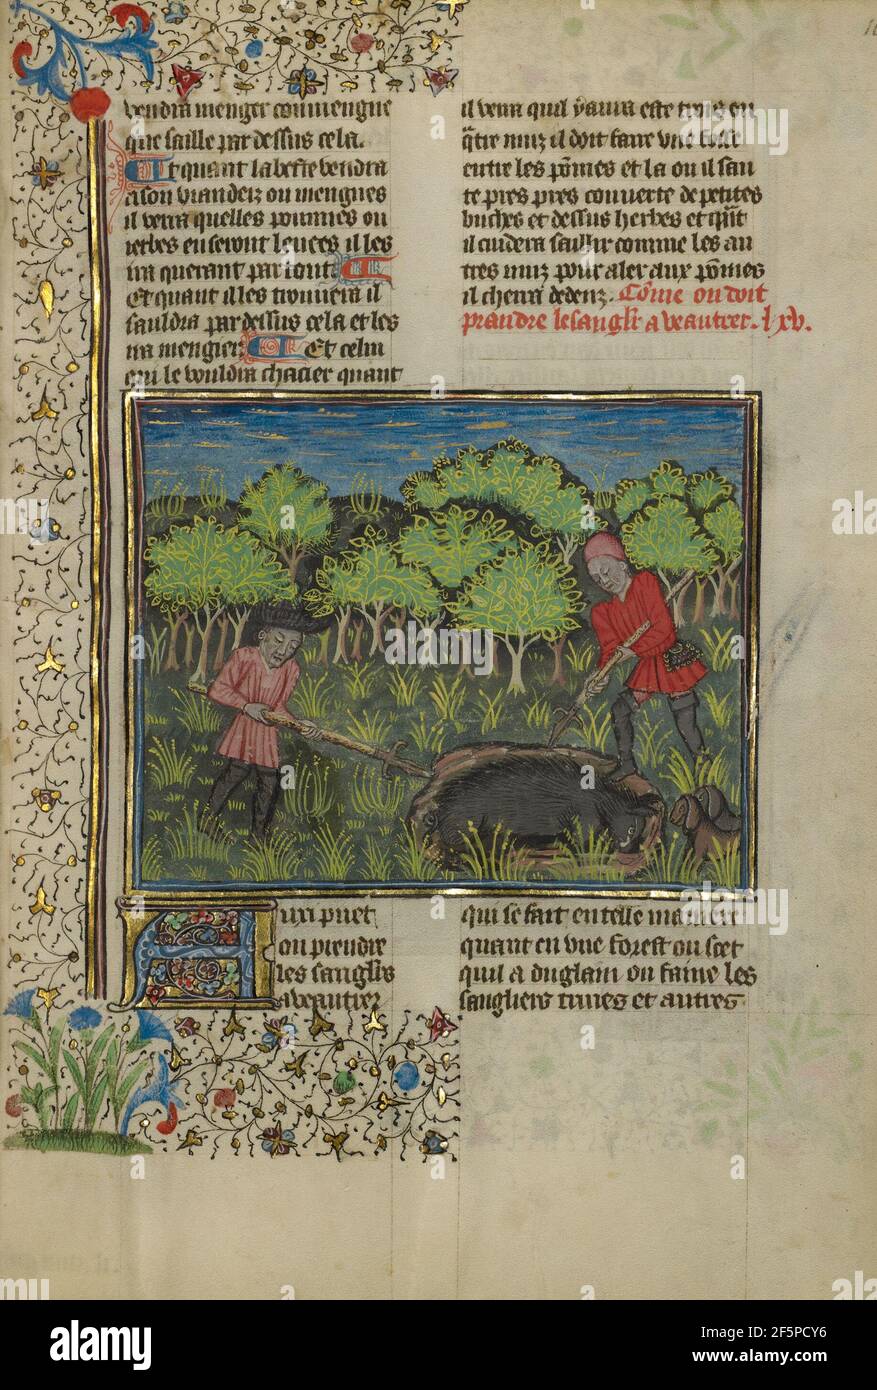 vendra menger conmengne
que saille par dessus cela.
Et quant la beste vendra
a son viandeiz ou mengues
il verra quelles pommes ou
herbes en seront levees il les
ira querant par tout.
Et quant il les trouvera il
sauldra par dessus cela et les
ira mengier. Et celui
qui le vouldra chacier quant
il verra quil yaura este trois ou
q̄tre nuiz il doit faire vne fosse
entre les pōmes et la ou il sau
te pres pres couverte de petites
buches et dessus herbes et qūt
il cuidera saillir comme les au
tres nuiz pour aler aux pōmes
il cherra dedenz. Cōme on doit
prandre le sanglr̄ a veautrer. lxv.
Auxi puet
on prendre
les sanglr̄s
a veautrer
qui se fait en telle maniere
quant en vne forest ou soet
quil a du glain ou faine les
sangliers truies et autres
alamy
Image ID: 2F5PCY6
www.alamy.com